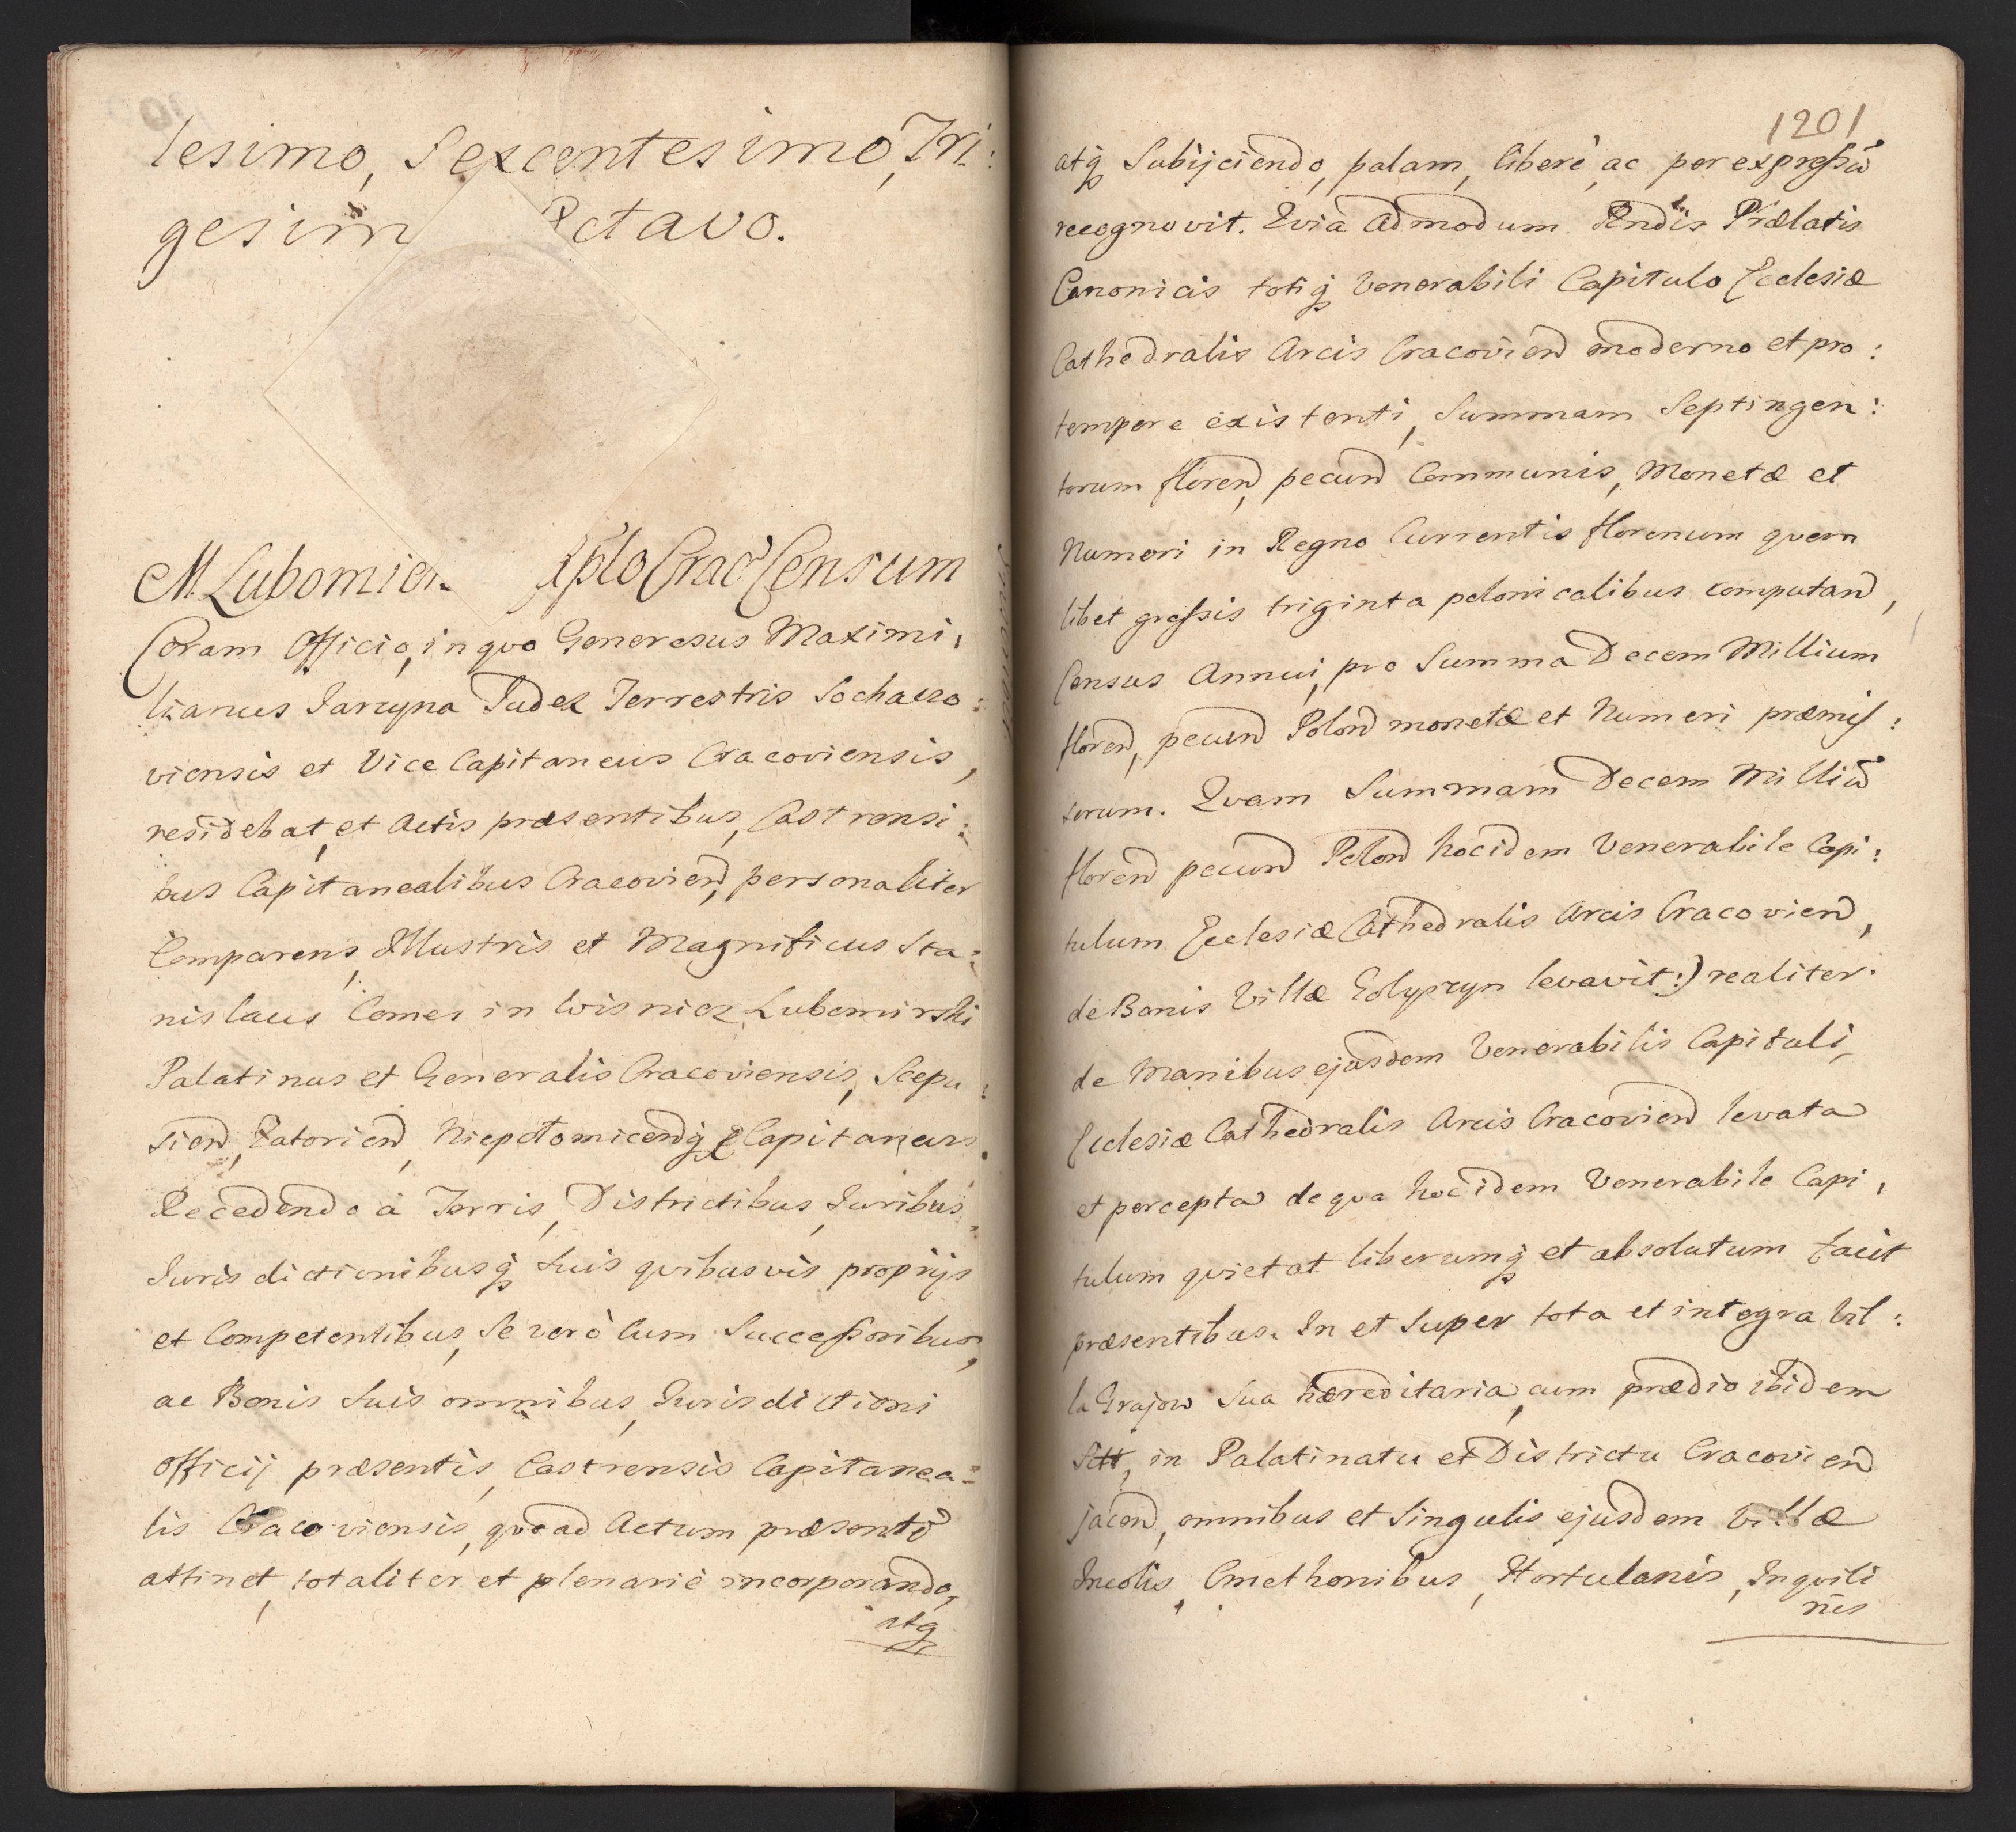 lesimo, Sexcentesimo, Tri:
gesim Octavo.
M. Lubomier. Cplo Crac Censum
Coram Officio, in quo Generosus Maximi,
lianus Jarzyna Judex Terrestris Sochaczo:
viensis et Vice Capitaneus Cracoviensis,
residebat, et Actis præsentibus, Castrensi:
bus Capitanealibus Cracovien, personaliter
Comparens, Illustris et Magnificus Sta:
nislaus Comes in Wisnicz, Lubomirski
Palatinus et Generalis Cracoviensis, Scepu:
sien, Zatorien, Niepołomicenq Capitaneus.
Recedendo à Terris, Districtibus, Juribus,
Jurisdictionibusq suis quibusvis proprijs
et Competentibus, Se verò Cum Successoribus,
ac Bonis suis omnibus, Jurisdictioni
Officij præsentis, Castrensis Capitanea=
lis Cracoviensis, quoad Actum præsentē
attinet, totaliter et plenariè incorporando,
atq
1201
atq Subijciendo, palam, liberè ac per expressū
recognovit. Quia Admodum Rndis Prælatis
Canonicis totiq Venerabili Capitulo Ecclesiæ
Cathedralis Arcis Cracovien moderno et pro:
tempore existenti, Summam Septingen:
torum floren, pecun Communis, Monetæ et
Numeri in Regno Currentis florenum quem
libet grossis triginta polonicalibus computan,
Census Annui, pro Summa Decem Millium
floren, pecun Polon monetæ et Numeri præmis:
sorum. Quam Summam Decem Milliū
floren pecun Polon hocidem Venerabile Capi:
tulum Ecclesiæ Cathedralis Arcis Cracovien,
de Bonis Villæ Golyprzyn levavit:) realiter
de Manibus ejusdem Venerabilis Capituli,
Ecclesiæ Cathedralis Arcis Cracovien levata
et percepta de qua hocidem Venerabile Capi,
tulum quietat liberumq et absolutum facit
præsentibus. In et Super tota et integra Vil:
la Grajow Sua hæreditaria, cum prædio ibidem
Sitt, in Palatinatu et Districtu Cracovien
jacen, omnibus et Singulis ejusdem Villæ
Incolis, Cmethonibus, Hortulanis, Inquili
nis